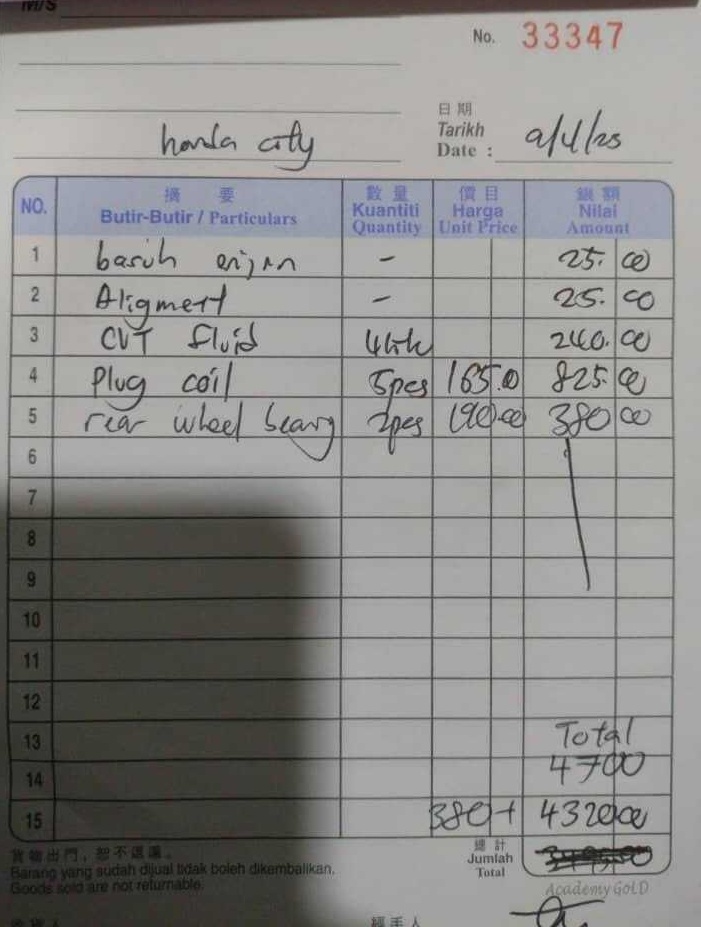 M/S
No. 33347
日期
Tarikh
Date : 9/4/25
honda city
NO. 摘要 Butir-Butir / Particulars 數量 Kuantiti Quantity 價目 Harga Unit Price 銀額 Nilai Amount
1 basuh enjin - 25. 00
2 Aligment - 25. 00
3 CVT fluid 240. 00
4 Plug coil 5pcs 165.0 825. 00
5 rear wheel bearing 2pcs 190 00 380 00
6
7
8
9
10
11
12
13 Total
14 4700
15 380 + 4320 00
貨物出門，恕不退還。
Barang yang sudah dijual tidak boleh dikembalikan.
Goods sold are not returnable.
總計
Jumlah
Total
Academy GoLD
經手人